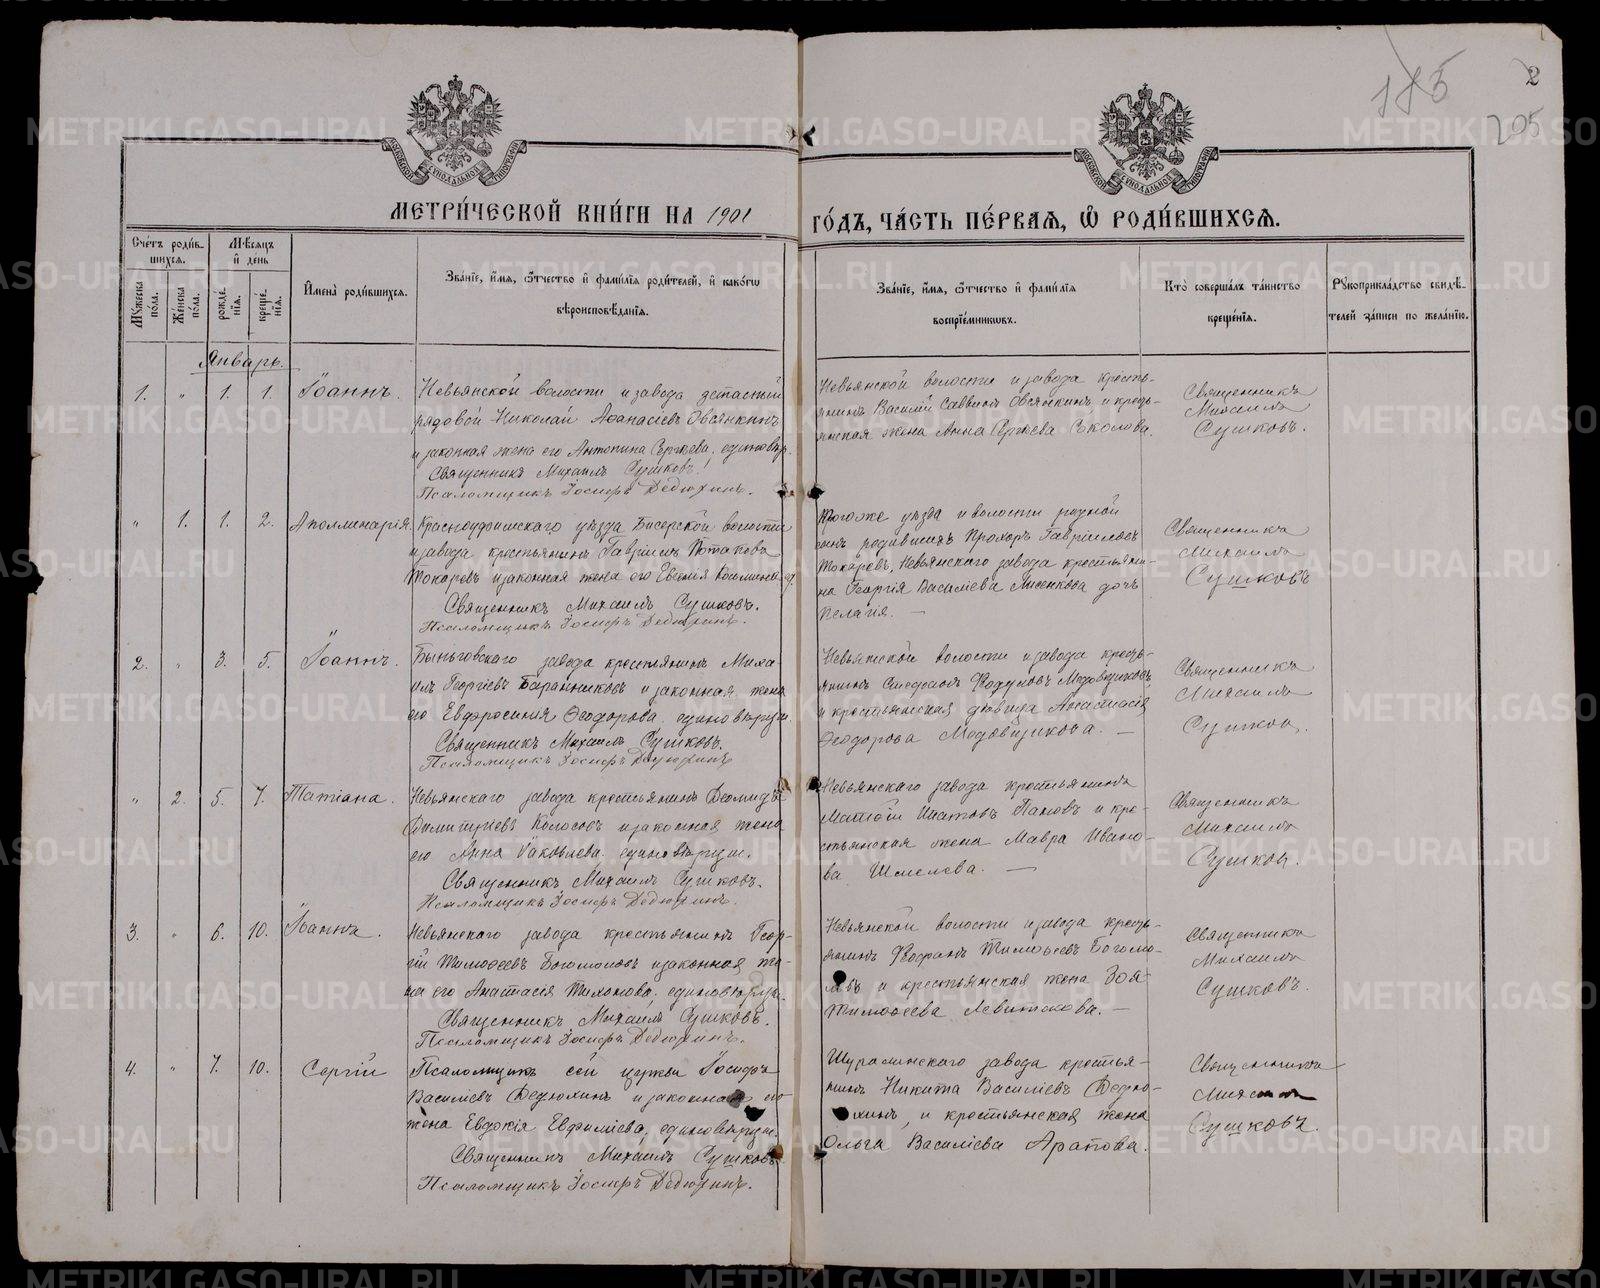 185
2
205
МОСКОВСКОЙ СѴНОДАЛЬНОЙ ТИПОГРАФІИ
МОСКОВСКОЙ СѴНОДАЛЬНОЙ ТИПОГРАФІИ
МЕТРИ́ЧЕСКОЙ КНИ́ГИ НА 1901 ГО́ДЪ, ЧА́СТЬ ПЕ́РВАЯ, Ѽ РОДИ́ВШИХСЯ.
Сче́тъ роди́в-
шихся.
Мѣсяцъ
и҆ день
Мꙋ́жеска по́ла.
Же́нска по́ла.
рожде́нїя.
креще́нїя.
И҆мена̀ роди́вшихся.
Зва́нїе, и҆́мя, ѻ҆́тчество и҆ фами́лїя роди́телей, и҆ како́гѡ
вѣроисповѣ́данїя.
Зва́нїе, и҆́мя, ѻ҆́тчество и҆ фами́лїя
воспрїе́мникѡвъ.
Кто̀ соверша́лъ та́инство
креще́нїя.
Рꙋкоприкла́дство свидѣ́-
телей за́писи по жела́нїю.
Январь.
1. " 1. 1. Іоаннъ.
Невьянской волости и завода запасный
рядовой Николай Аѳанасіевъ Овсянкинъ
и законная жена его Антонина Сергіева, единовѣр.
Священникъ Михаилъ Сушковъ.
Псаломщикъ Іосифъ Дедюхинъ.
Невьянской волости и завода кресть-
янинъ Василій Саввинъ Овсянкинъ и кресть-
янская жена Анна Сергіева Соколова.
Священникъ
Михаилъ
Сушковъ.
" 1. 1. 2. Аполлинарія.
Красноуфимскаго уѣзда Бисерской волости
и завода, крестьянинъ Гавріилъ Потапов
Токаревъ и законная жена его Евгенія
Священникъ Михаилъ Сушковъ.
Псаломщикъ Іосифъ Дедюхинъ.
Того же уѣзда и волости родной
сынъ родившихъ Прохоръ Гавріиловъ
Токаревъ, Невьянскаго завода крестьяни-
на Георгія Василіева дочь
Пелагія. —
Священникъ
Михаилъ
Сушковъ
2. " 3. 5. Іоаннъ.
Быньговскаго завода крестьянинъ Миха
илъ Георгіевъ Баранниковъ и законная жена
его Евфросинія Ѳеодорова, единовѣрцы.
Священникъ Михаилъ Сушковъ.
Псаломщикъ Іосифъ Дедюхинъ
Невьянской волости и завода кресть-
янинъ Стефанъ Медовщиковъ
и крестьянская дѣвица Анастасія
Ѳеодорова Медовщикова. —
Священникъ
Михаилъ
Сушков.
" 2. 5. 7. Татіана.
Невьянскаго завода крестьянинъ Деомидъ
Димитріевъ Колосовъ и законная жена
его Анна Іаковлева, единовѣрцы.
Священникъ Михаилъ Сушковъ.
Псаломщикъ Іосифъ Дедюхинъ.
Невьянскаго завода крестьянинъ
Матѳій Пановъ и кре-
стьянская жена Мавра Ивано-
ва Шмелева. —
Священникъ
Михаилъ
Сушков.
3. " 6. 10. Іоаннъ.
Невьянскаго завода крестьянинъ Геор-
гій Тимоѳеевъ Богомоловъ и законная же-
на его Анастасія Тихонова, единовѣрцы.
Священникъ Михаилъ Сушковъ.
Псаломщикъ Іосифъ Дедюхинъ.
Невьянской волости и завода кресть-
янинъ Ѳеофанъ Тимоѳеевъ Богомо-
ловъ и крестьянская жена Зоя
Тимоѳеева Левитскова. —
Священникъ
Михаилъ
Сушковъ.
4. " 7. 10. Сергій
Псаломщикъ сей церкви Іосифъ
Василіевъ Дедюхинъ и законная его
жена Евдокія Евфиміева, единовѣрцы.
Священникъ Михаилъ Сушковъ.
Псаломщикъ Іосифъ Дедюхинъ.
Шуралинскаго завода крестья-
нинъ Никита Василіевъ Дедю-
хинъ, и крестьянская жена
Ольга Василіева Арапова.
Священникъ
Михаилъ
Сушковъ.
METRIKI.GASO-URAL.RU